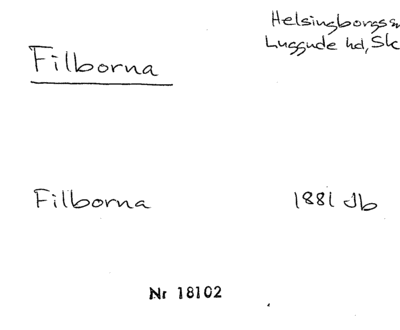 Helsingborgs sn
Luggude hd, Sk
Filborna
Filborna 1881 Jb
Nr 18102